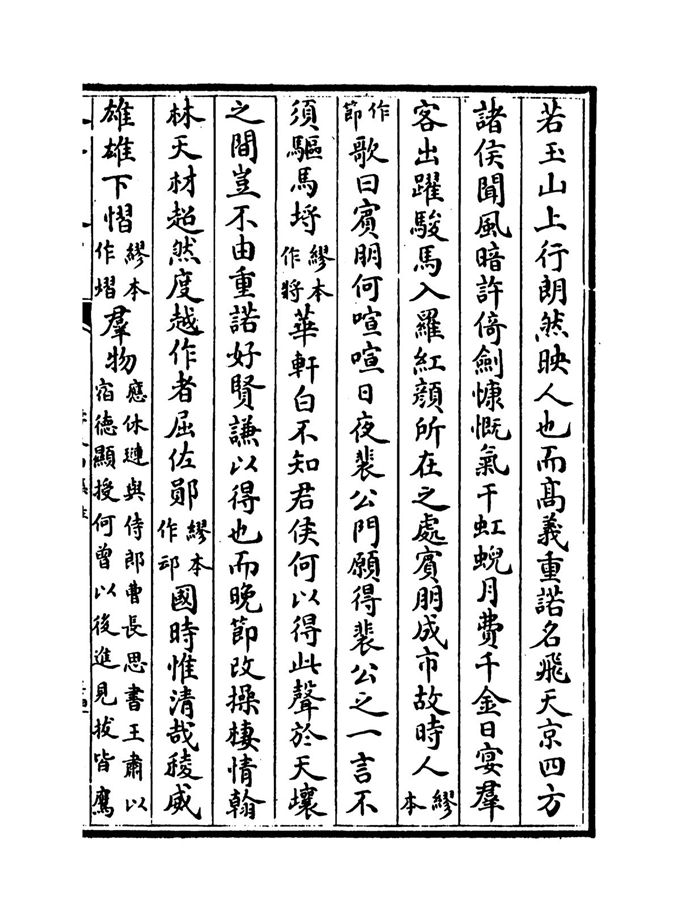 若玉山上行朗然映人也而髙義重諾名飛天京四方
諸侯聞風暗許倚劒慷慨氣干虹蜺月費千金日宴羣
客出躍駿馬入羅紅顔所在之處賓朋成市故時人繆本
作節歌曰賓朋何喧喧日夜裴公門願得裴公之一言不
須驅馬埓繆本作將華軒白不知君侯何以得此聲於天壤
之間豈不由重諾好賢謙以得也而晚節改操棲情翰
林天材超然度越作者屈佐鄖繆本作國時惟清哉稜威
雄雄下慴繆本作熠羣物應休璉與侍郎曹長思書王肅以宿德顯授何曾以後進見拔皆鷹